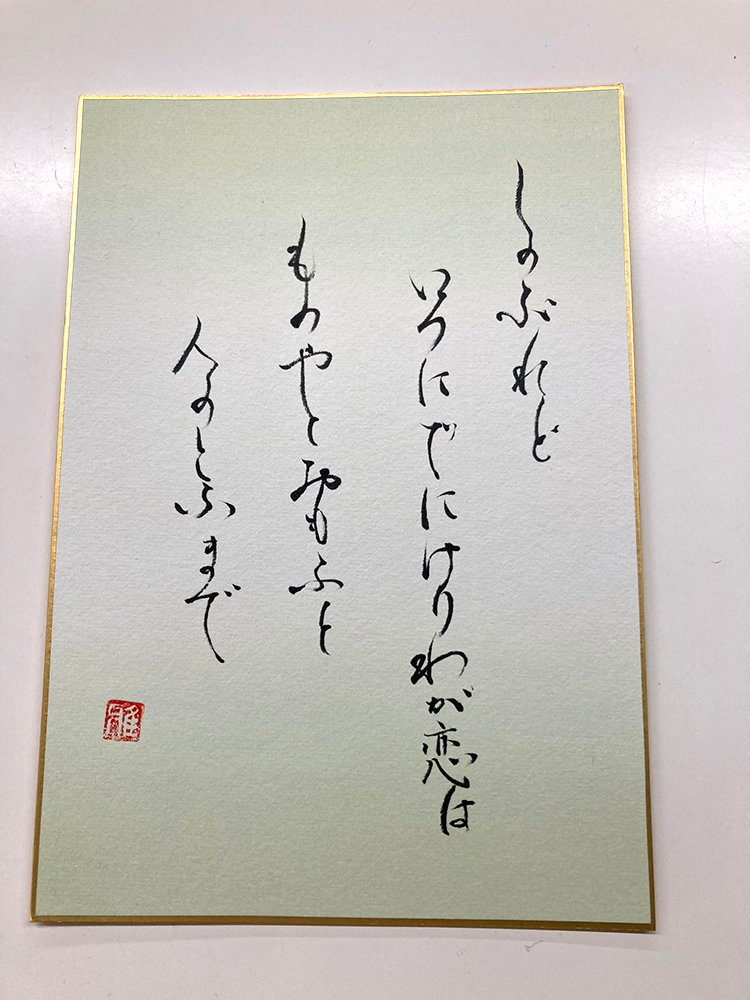 しのぶれど
いろにでにけりわが恋は
ものやとおもふと
人のとふまで
雅